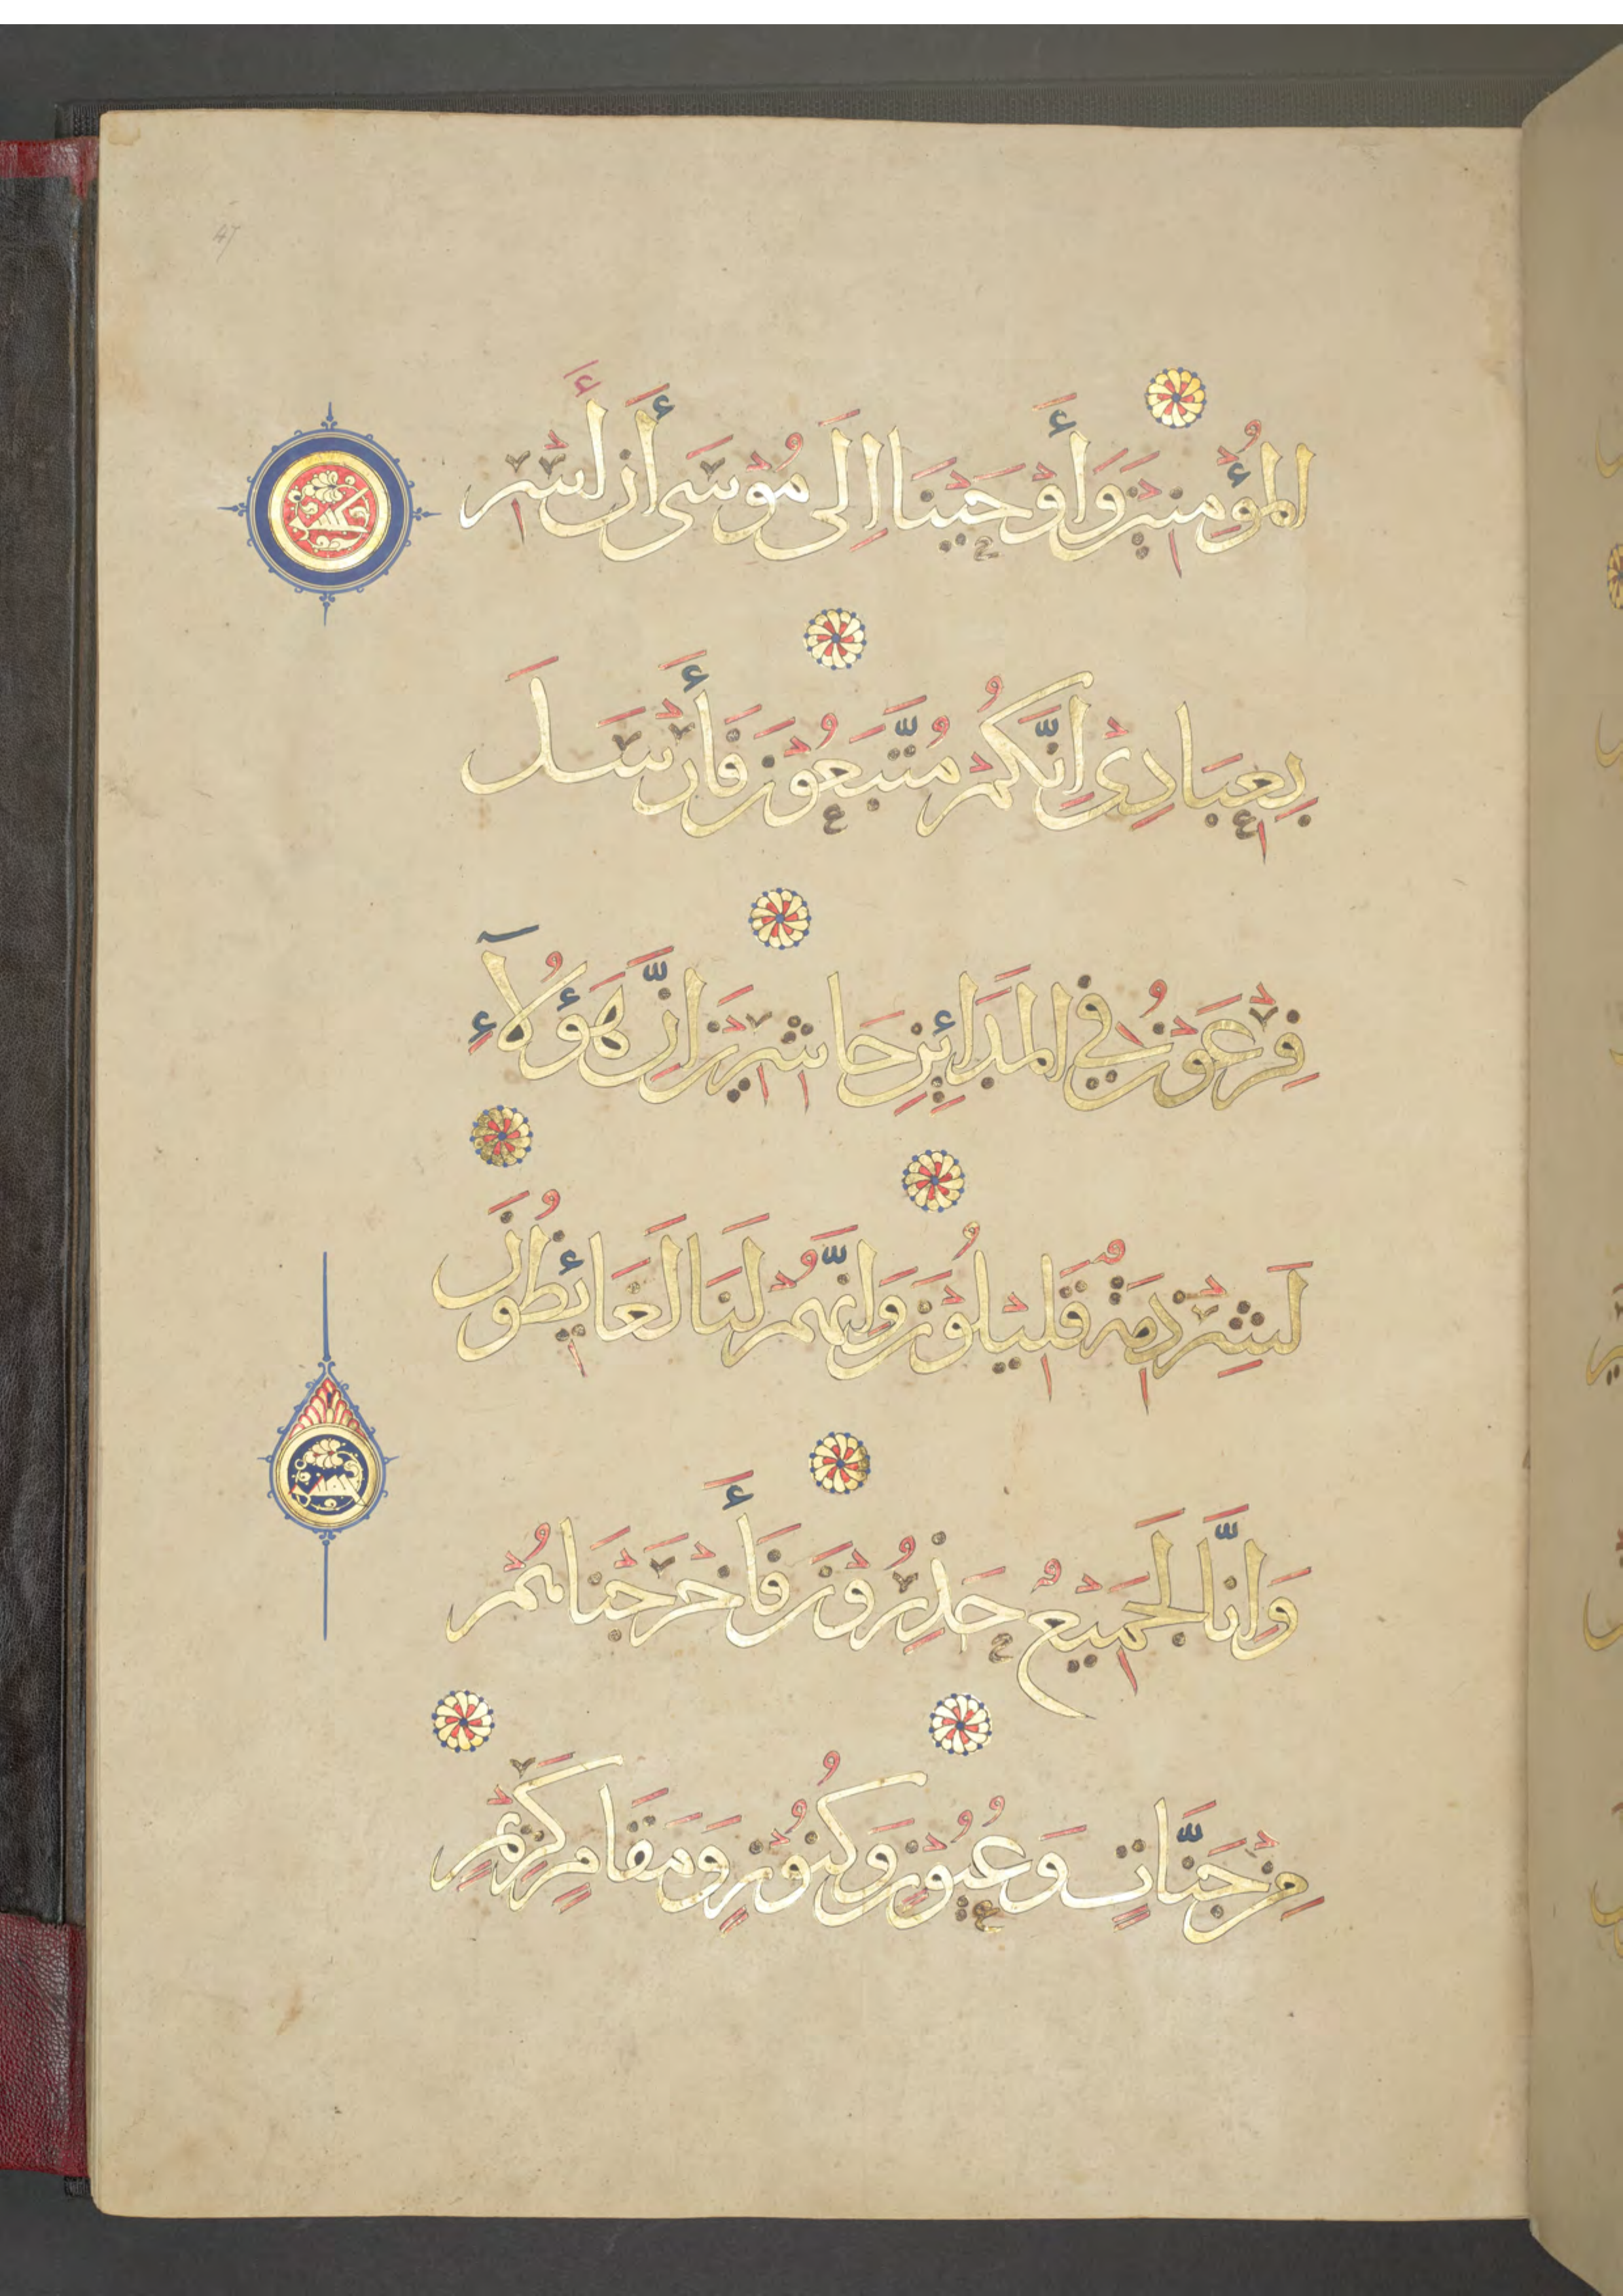 47
المُؤْمِنِيْنَ وَأَوْحَيْنَا اِلَى مُوْسَى أَن أَسْرِ
بِعِبَادِي اِنَّكُمْ مُتَّبَعُوْنَ فَأَرْسَلَ
فِرْعَوْنُ فِي المَدَائِنِ حَاشِرِيْنَ اِنَّ هَؤُلَآءِ
لَشِرْذِمَةٌ قَلِيْلُوْنَ وَاِنَّهُمْ لَنَا لَغَائِظُونَ
وَاِنَّا لَجَمِيْعٌ حَذِرُوْنَ فَأَخْرَجْنَاهُمْ
مِنْ جَنَّاتٍ وَعُيُوْنٍ وَكُنُوْزٍ وَمَقَامٍ كَرِيْمٍ